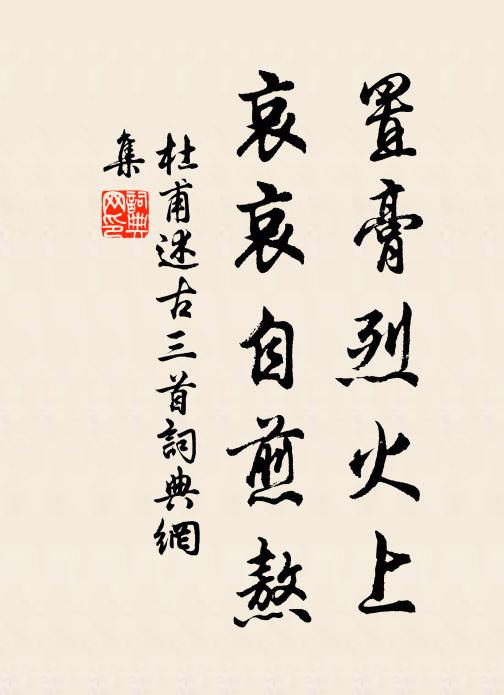 置膏烈火上
哀哀自煎熬
杜甫述古三首詞典網
集
詞典网印